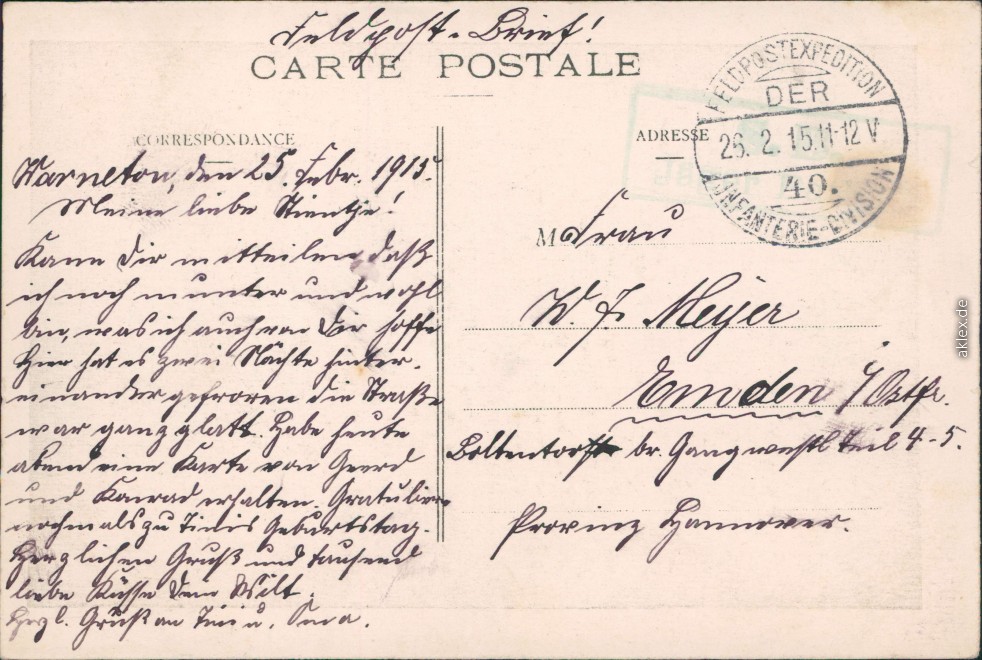 Feldpost-Brief!
CARTE POSTALE
CORRESPONDANCE
ADRESSE
FELDPOSTEXPEDITION
DER
26. 2. 15. 11-12 V.
40.
INFANTERIE-DIVISION
Warneton, den 25. Febr. 1915.
Meine liebe Stientje!
Kann Dir mitteilen daß
ich noch munter und wohl
bin, was ich auch von Dir hoffe
Hier hat es zwei Nächte hinter-
einander gefroren die Straße
war ganz glatt. Habe heute
eine Karte von Geerd
und Konrad erhalten. Gratuliere
nochmals zu Tinis Geburtstag.
Herzlichen Gruß und tausend
liebe Küsse Dein Wilt.
Herzl. Gruß an Tini u. Oma.
M Frau
W. F. Meyer
Emden i/Ostfr.
br. Gang westl Teil 4-5.
Provinz Hannover.
aklex.de